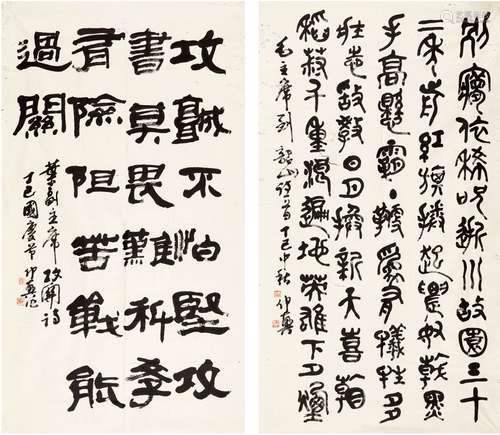 别夢依稀咒逝川故園三十
二年前紅旗捲起農奴戟黑
手高懸霸主鞭為有犧牲多
壯志敢教日月換新天喜看
稻菽千重浪遍地英雄下夕煙
毛主席到韶山詩一首 丁巳中秋
攻城不怕堅攻
書莫畏難科學
有險阻苦戰能
過關
葉副主席攻關詩
丁巳國慶節